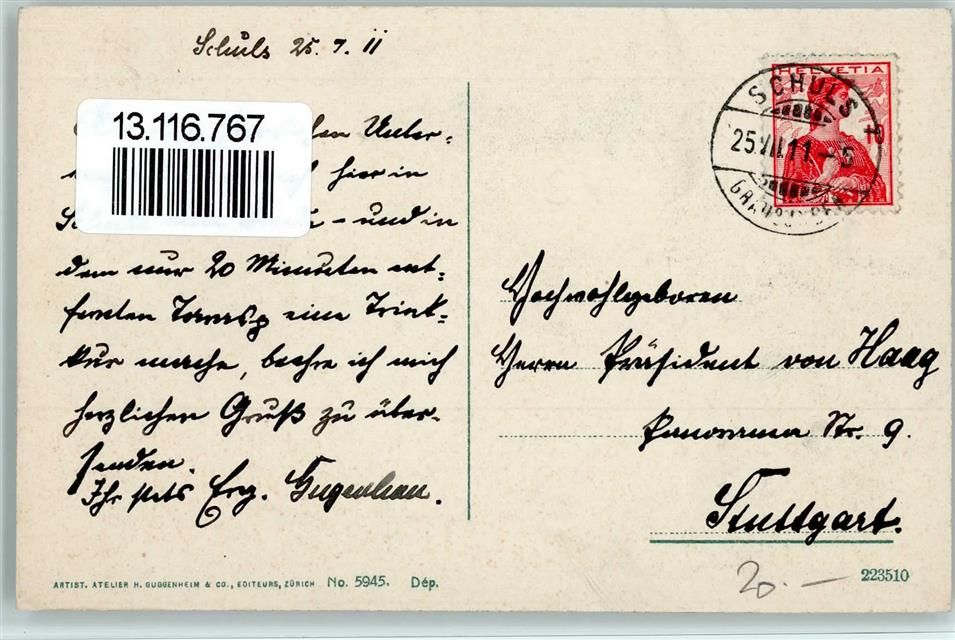 Schuls 25.7.11
13.116.767
Unter-
hier in
– und in
dem nur 20 Minuten ent-
fernten Tarasp eine Trink-
kur mache, beehre ich mich
herzlichen Gruß zu über-
senden.
Ihr stets Erg.
HELVETIA
SCHULS
25.VII.11-5
GRAUBÜNDEN
Hochwohlgeboren
Herrn Präsident von Haag
Panorama Str. 9.
Stuttgart.
ARTIST. ATELIER H. GUGGENHEIM & CO., EDITEURS, ZÜRICH No. 5945. Dép.
20.—
223510